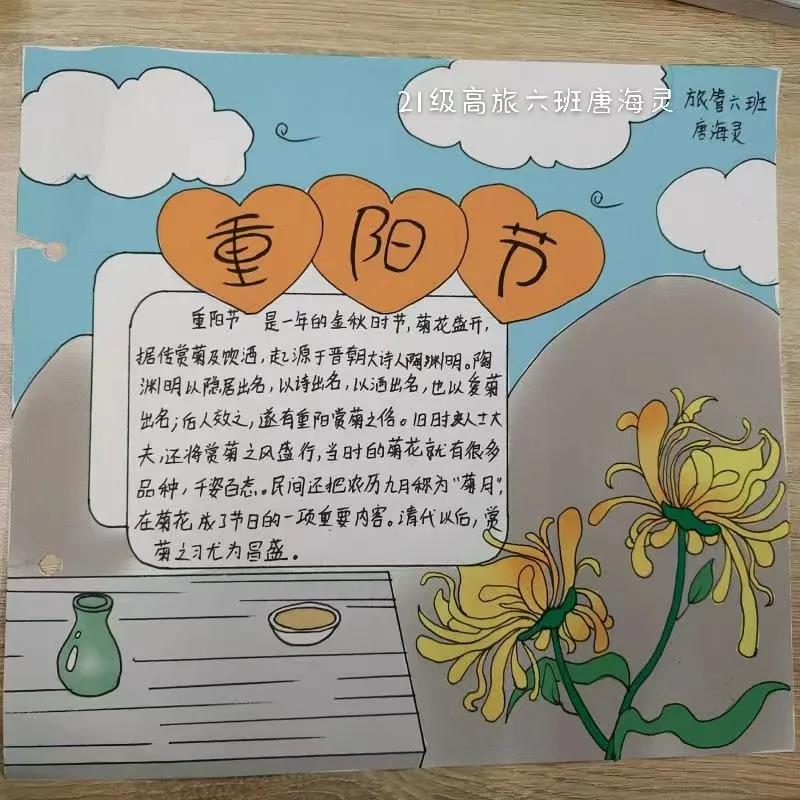 21级高旅六班唐海灵
旅管六班
唐海灵
重阳节
重阳节 是一年的金秋时节,菊花盛开,
据传赏菊及饮酒,起源于晋朝大诗人陶渊明。陶
渊明以隐居出名,以诗出名,以酒出名,也以爱菊
出名;后人效之,遂有重阳赏菊之俗。旧时文人士大
夫,还将赏菊之风盛行,当时的菊花就有很多
品种,千姿百态。民间还把农历九月称为“菊月”,
在菊花 成了节日的一项重要内容。清代以后,赏
菊之习尤为昌盛。